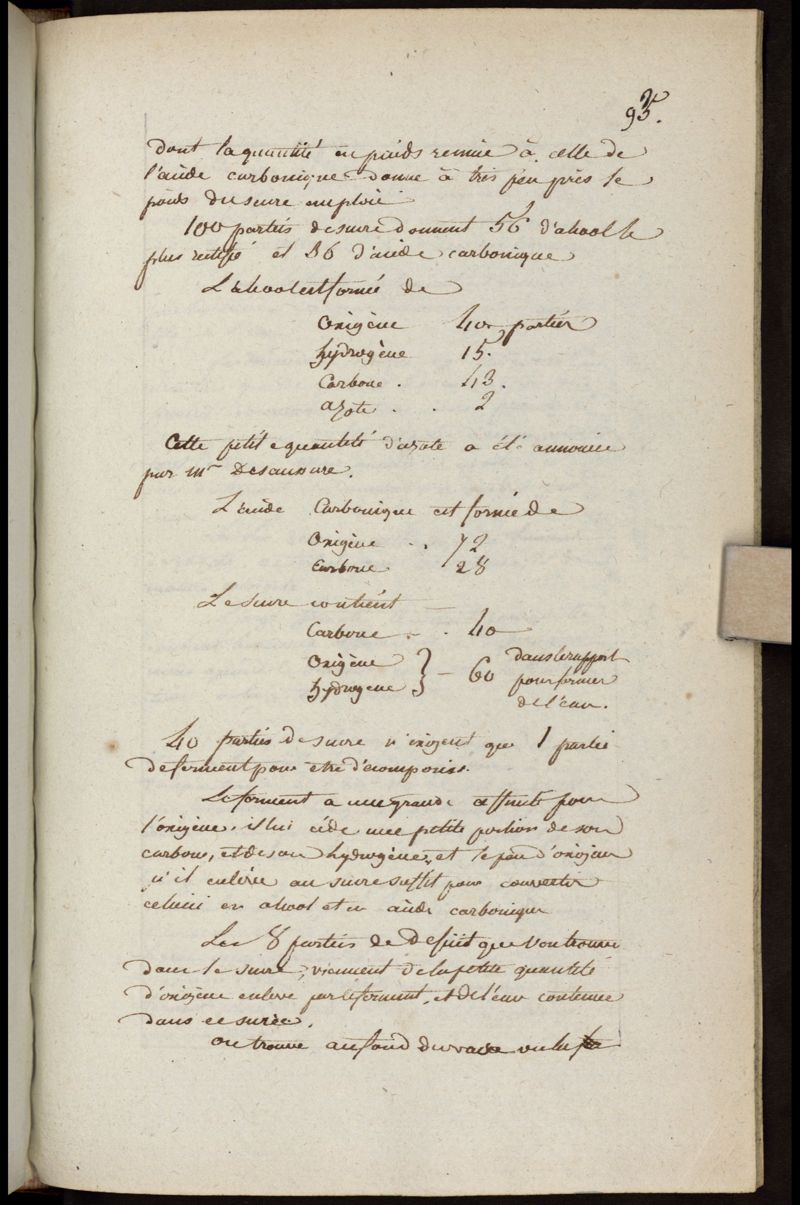 95.
dont la quantité en poids reunie à celle de
l'acide carbonique donne à très peu près le
poids du sucre emploié
100 parties de sucre donnent 56 d'alcool le
plus rectifié et 36 d'acide carbonique
L'alcool est formé de
Oxigène 40 parties
hydrogène 15.
Carbone . 43.
azote . . 2
Cette petite quantité d'azote a été annoncée
par mr Desaussure.
L'acide Carbonique est formé de
Oxigène . . 72
Carbone 28
Le sucre contient
Carbone . . 40
Oxigène } – 60 dans le rapport
hydrogene pour former
de l'eau.
40 parties de sucre n'exigent que 1 partie
de ferment pour etre décomposés.
Le ferment a une grande affinité pour
l'oxigène, il lui céde une petite portion de son
carbone, et de son hydrogène, et le peu d'oxigene
qu'il enlève au sucre suffit pour convertir
celui ci en alcool et en acide carbonique
Les 8 parties de Deficit que l'on trouve
dans le sucre, viennent de la petite quantité
d'oxigene enlevé par le ferment, et de l'eau contenue
dans ce sucre.
on trouve au fond du vase